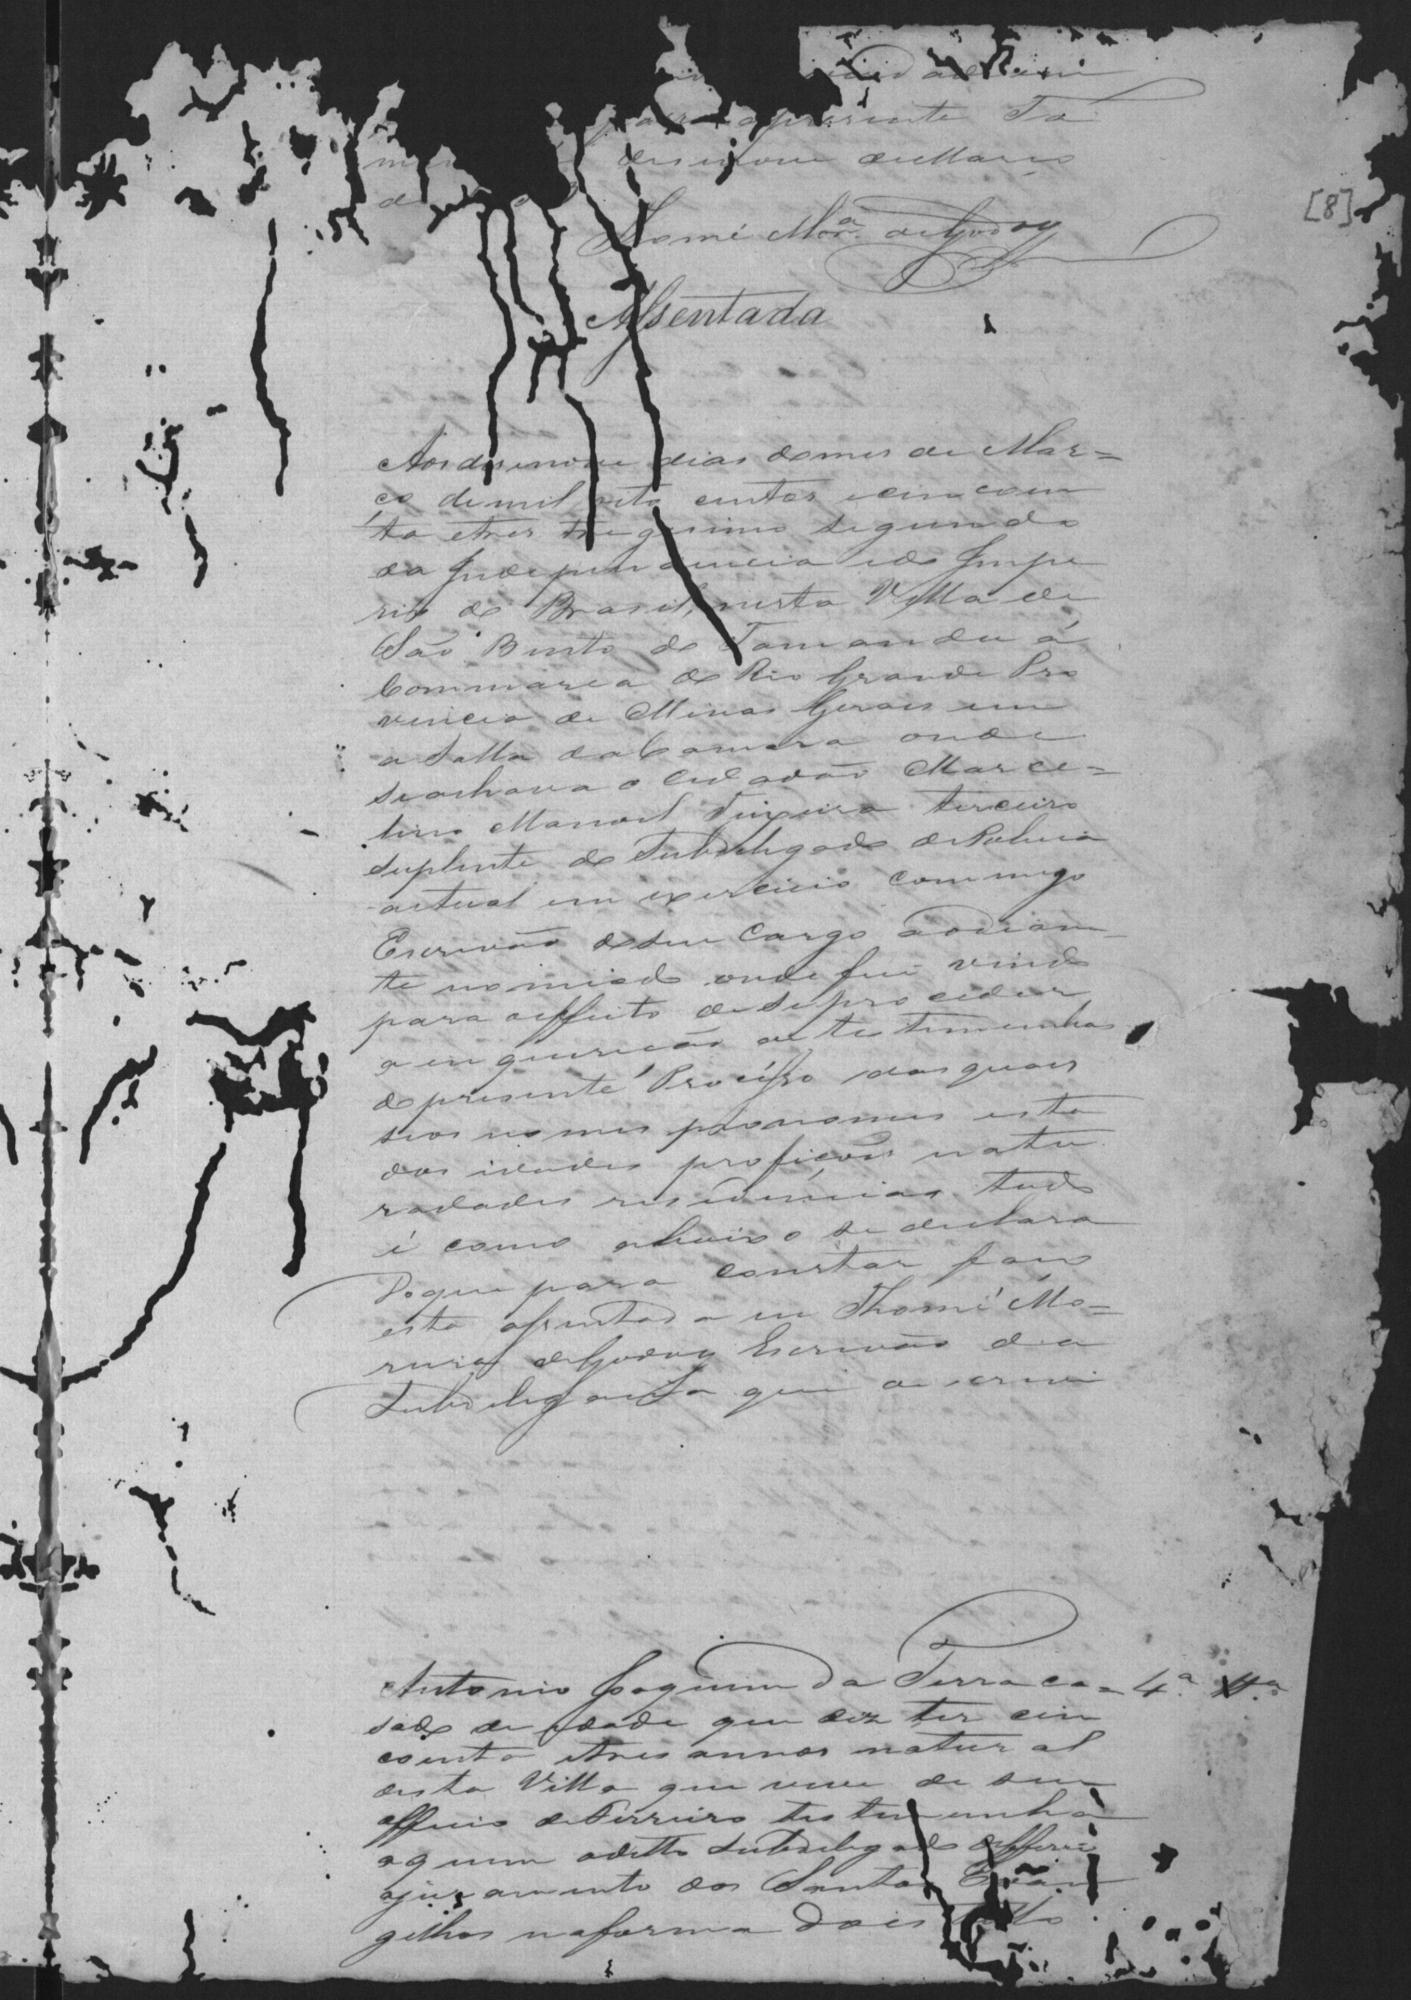 para apresente Ta
desenove de Março
Thomé Mora. de Godoy
[8]
Assentada
Aos desenove dias do mes de Mar=
ço de mil oito centos e cin coen
ta e tres tregesimo segundo
da Independencia e do Impe
rio do Brasil, nesta Villa de
São Bento do Tamanduá
Commarca do Rio Grande Pro
vincia de Minas Gerais em
a Salla da Camara onde
se achava o Cidadão Marce=
lino Manoel Teixeira terceiro
Suplente do Subdelegado de Policia
actual em exercicio commigo
Escrivão de seu Cargo adiam
te nomiado onde fui vindo
para effeito de se proceder
a inquirição de testemunhas
do presente Procésso, das quais
seos nomes pronomes esta
dos idades profiçoes natu
radades residencias tudo
é como abaixo se declara
Do que para constar faso
esta asentada eu Thomé Mo=
reira de Godoy Escrivão da
Subdelegacia que a escrevi
Antonio Joaquim da Terra ca= 4ª
sado de idade que diz ter cin
coenta e tres annos natural
desta Villa que vive de seu
officio de Ferreiro testemunha
a quem o ditto Subdelegado defferio
o juramento dos Santos Evan
gelhos na forma